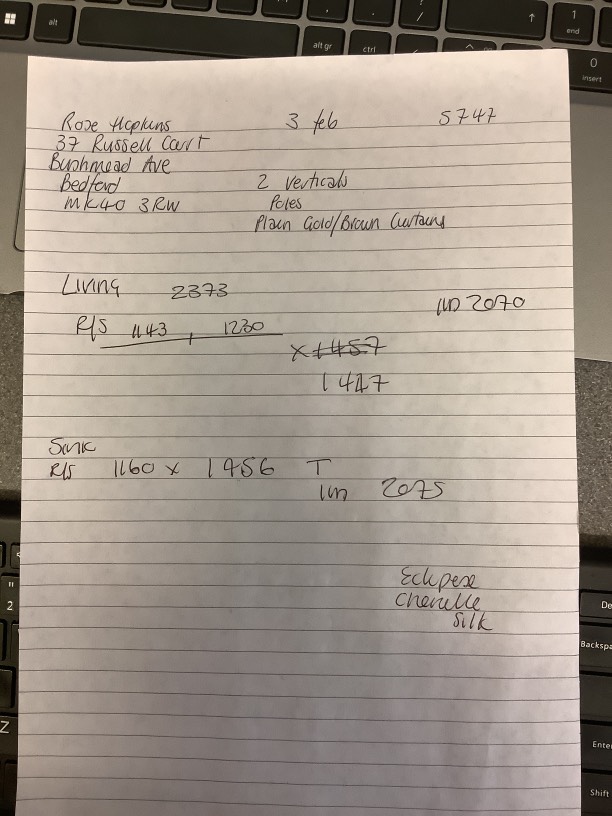 Rose Hopkins 3 feb 5747
37 Russell Court
Bushmead Ave
Bedford 2 Verticals
MK40 3RW Poles
Plain Gold/Brown Curtains
Living 2373
un 2070
R/S 1143, 1230
x 1457
1447
Sink
R/S 1160 x 1456 T
un 2075
Eclipese
Chenelle
Silk
alt
alt gr
ctrl
/
1
end
0
insert
"
2
Z
De
Backspa
Enter
Shift